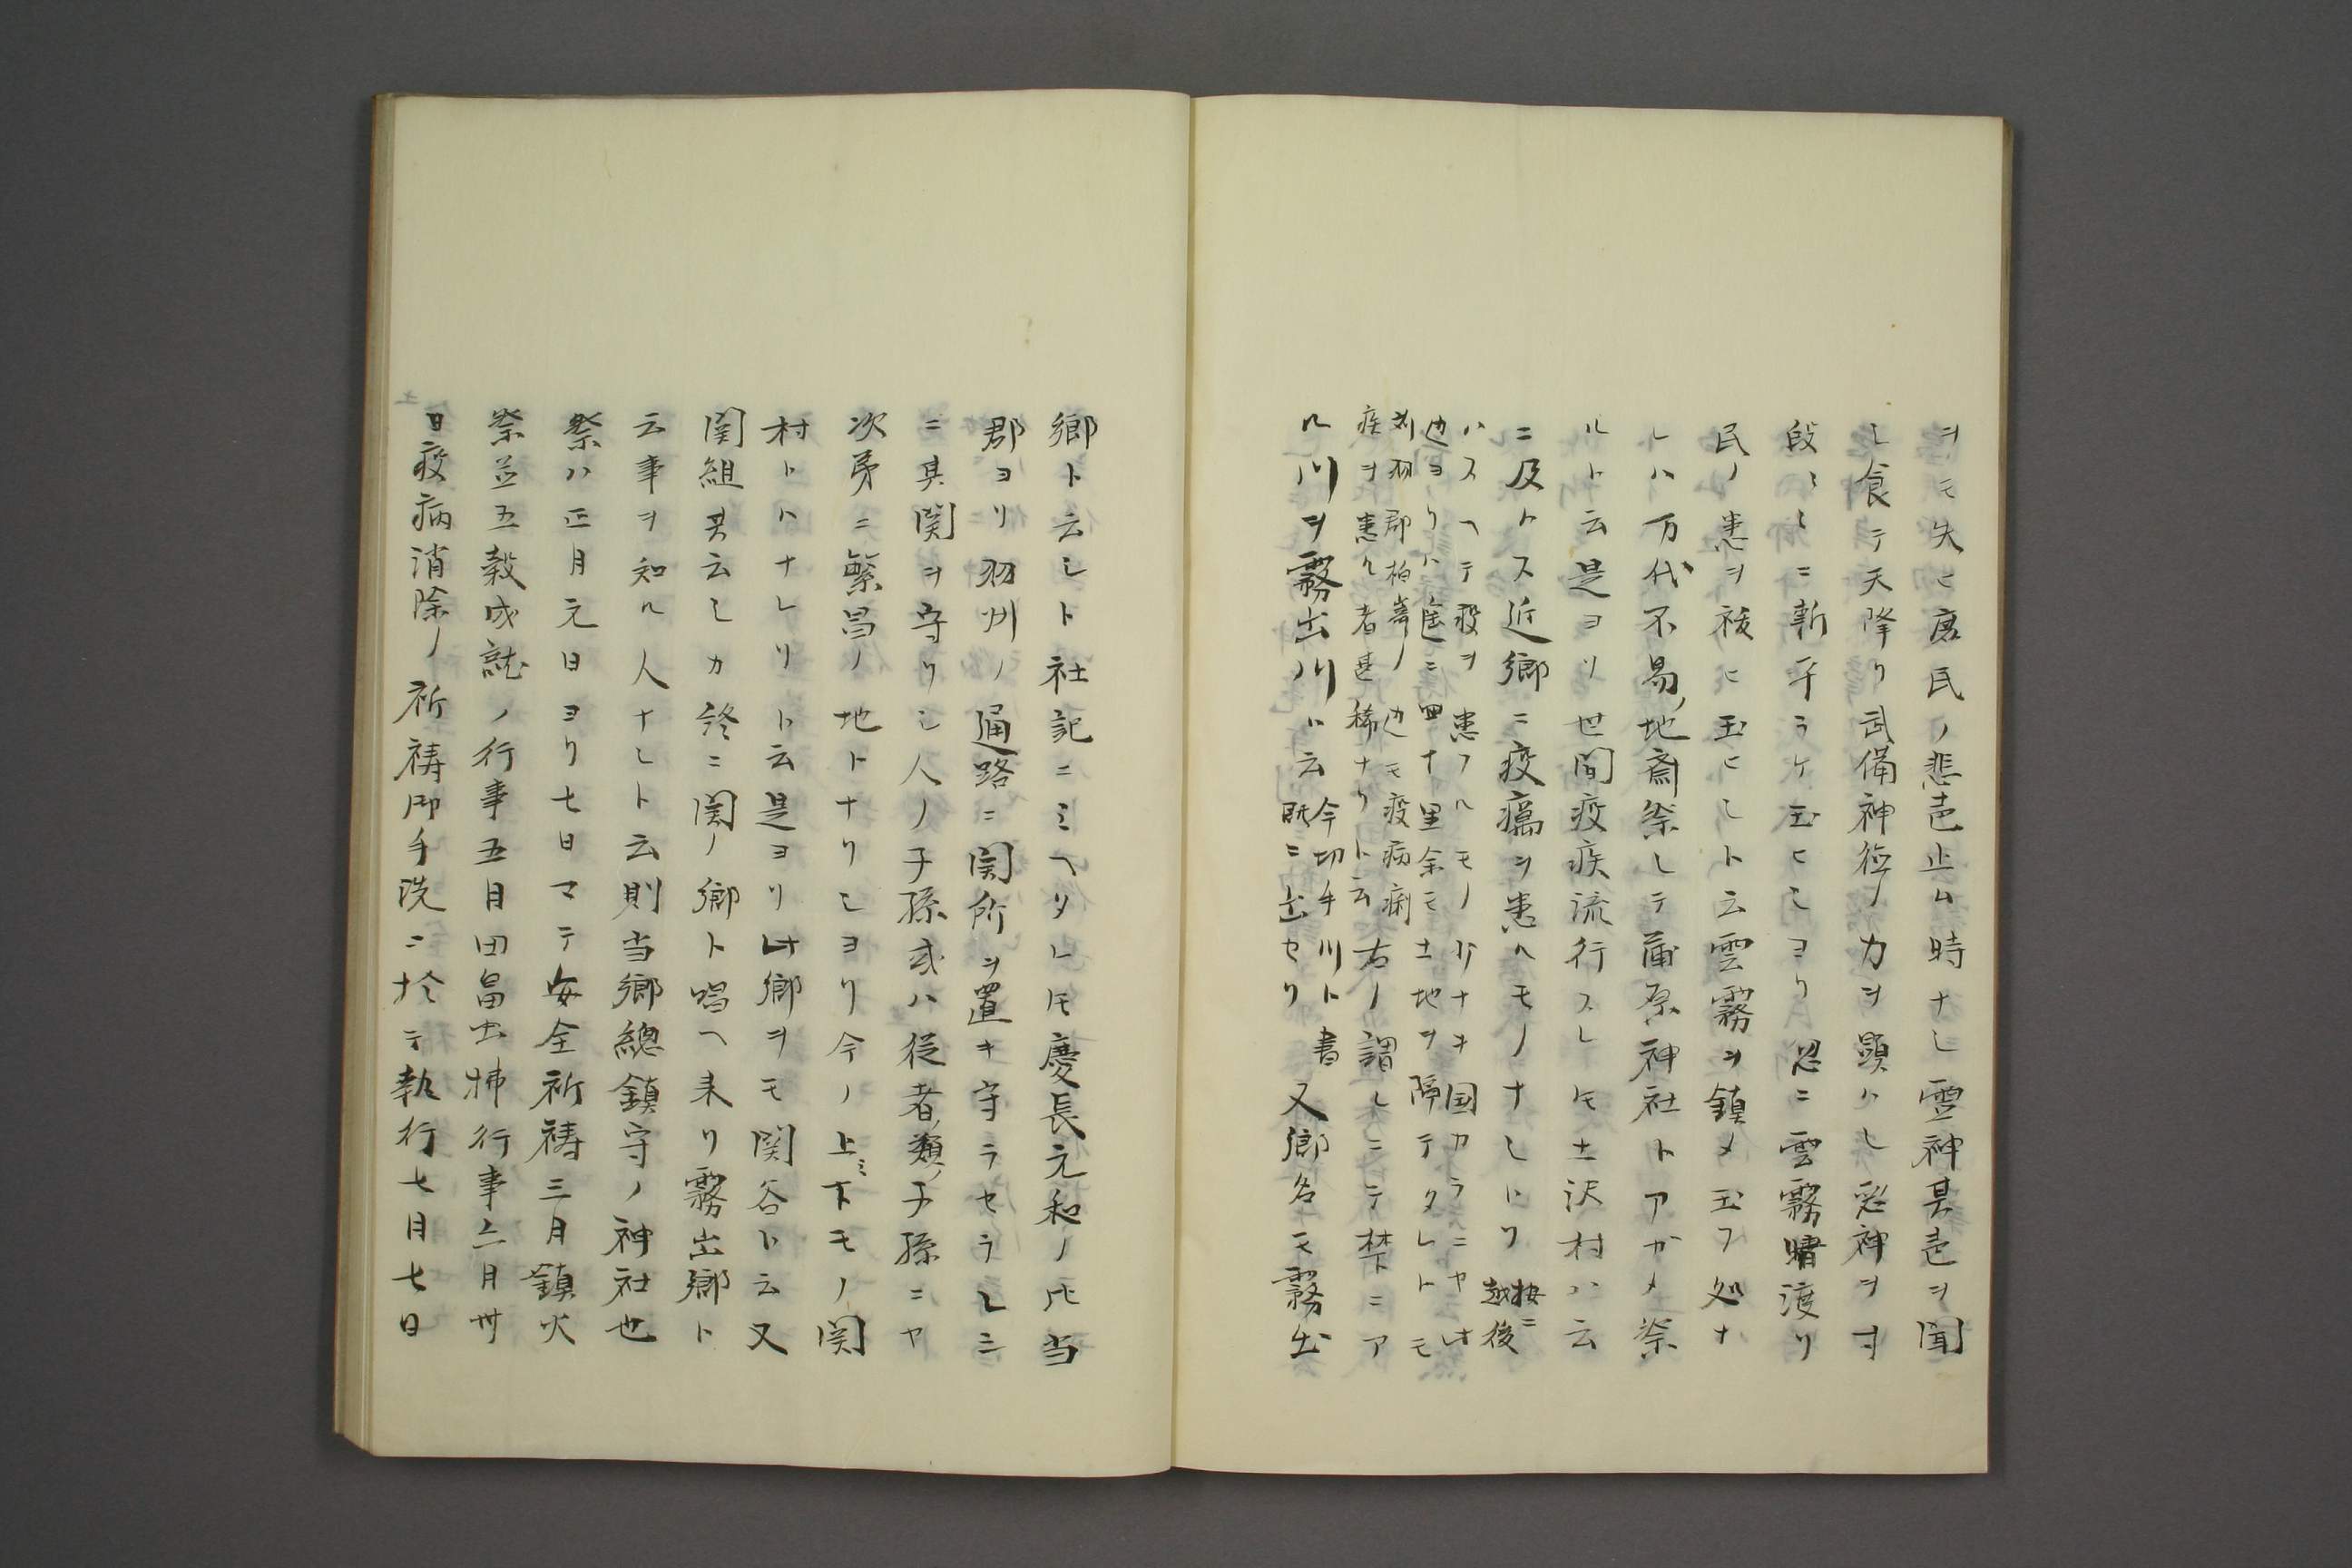 ヲモ失ヒ庶民ノ悲壱止ム時ナシ霊神其壱ヲ聞
シ食テ天降り武備神徳ノ力ヲ顕ハシ悪神ヲ寸
段〻〻ニ斬平ラケ玉ヒシヨリ忽ニ雲霧晴渡リ
民ノ患ヲ祓ヒ玉ヒシト云雲霧ヲ鎮メ玉フ処ナ
レハ万代不易ノ地斎祭シテ蒲原神社トアカメ祭
ルト云是ヨリ世間疫疾流行スレトモ土沢村ハ云
ニ及ハス近郷ニ疫癘ヲ患ヘモノナシトソ
按ニ越後
ハスヘテ疫ヲ患フルモノ少ナキ国カラニヤ此
辺ヨリハ僅ニ四十里余モ土地ヲ隔テタレトモ
刈羽郡柏嵜ノ辺モ疫病痢
疾ヲ患ル者甚稀ナリト云右ノ謂レニテ禁下ニア
ル川ヲ霧出川ト云
今切手川ト書
既ニ出セリ
又郷名モ霧出
郷ト云シト社記ニミヘタレトモ慶長元和ノ比当
郡ヨリ羽州ノ通路ニ関所ヲ置キ守ラセラレシ
ニ其関ヲ守リシ人ノ子孫或ハ従者ノ類ノ子孫ニヤ
次第ニ繁昌ノ地トナリシヨリ今ノ上ミ下モノ関
村トハナレリト云是ヨリ此郷ヲモ関谷ト云又
関組共云シカ終ニ関ノ郷ト唱ヘ来リ霧出郷ト
云事ヲ知ル人ナシト云則当郷総鎮守ノ神社也
祭ハ正月元日ヨリ七日マテ安全祈祷三月鎮火
祭並五穀成就ノ行事五月田畠虫拂行事六月卅
日疫病消除ノ祈祷御手洗ニ於テ執行七月七日